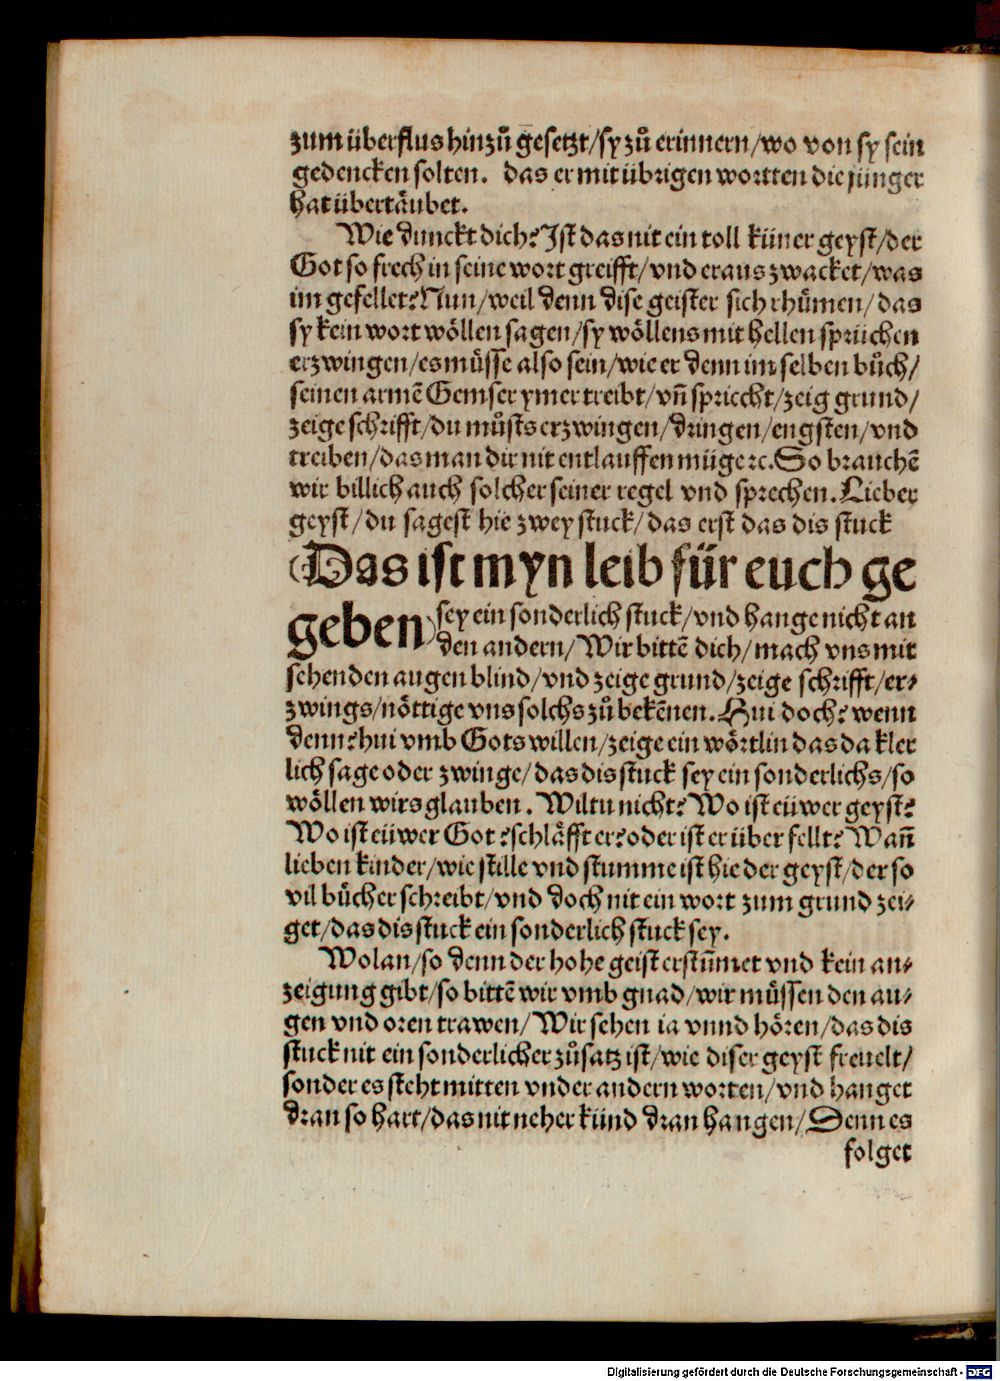 zum überflus hinzů gesetzt/sy zů erinnern/wo von sy sein
gedencken solten. das er mit übrigen wortten die jünger
hat übertäubet.
Wie dunckt dich? Ist das nit ein toll küner geyst/der
Got so frech in seine wort greifft/vnd eraus zwacket/was
im gefellet? Nun/weil denn dise geister sich rhümen/das
sy kein wort wöllen sagen/sy wöllens mit hellen sprüchen
erzwingen/es müsse also sein/wie er denn im selben bůch/
seinen armē Gemser ymer treibt/vn̄ spriccht/zeig grund/
zeige schrifft/du můsts erzwingen/dringen/engsten/vnd
treiben/das man dir nit entlauffen müge ꝛc. So brauchē
wir billich auch solcher seiner regel vnd sprechen. Lieber
geyst/du sagest hie zwey stuck/das erst das dis stuck
(Das ist myn leib für euch ge
geben) sey ein sonderlich stuck/vnd hange nicht an
den andern/Wir bittē dich/mach vns mit
sehenden augen blind/vnd zeige grund/zeige schrifft/er⸗
zwings/nöttige vns solchs zů bekēnen. Hui doch? wenn
denn? hui vmb Gots willen/zeige ein wörtlin das da kler
lich sage oder zwinge/das dis stuck sey ein sonderlichs/so
wöllen wirs glauben. Wiltu nicht? Wo ist eüwer geyst?
Wo ist eüwer Got? schläfft er? oder ist er über fellt? Wan̄
lieben kinder/wie stille vnd stumme ist hie der geyst/der so
vil bücher schreibt/vnd doch nit ein wort zum grund zei⸗
get/das dis stuck ein sonderlich stuck sey.
Wolan/so denn der hohe geist erstūmet vnd kein an⸗
zeigung gibt/so bittē wir vmb gnad/wir müssen den au⸗
gen vnd oren trawen/Wir sehen ia vnnd hören/das dis
stuck nit ein sonderlicher zůsatz ist/wie diser geyst freuelt/
sonder es steht mitten vnder andern worten/vnd hanget
dran so hart/das nit neher künd dran hangen/Denn es
folget
Digitalisierung gefördert durch die Deutsche Forschungsgemeinschaft - DFG